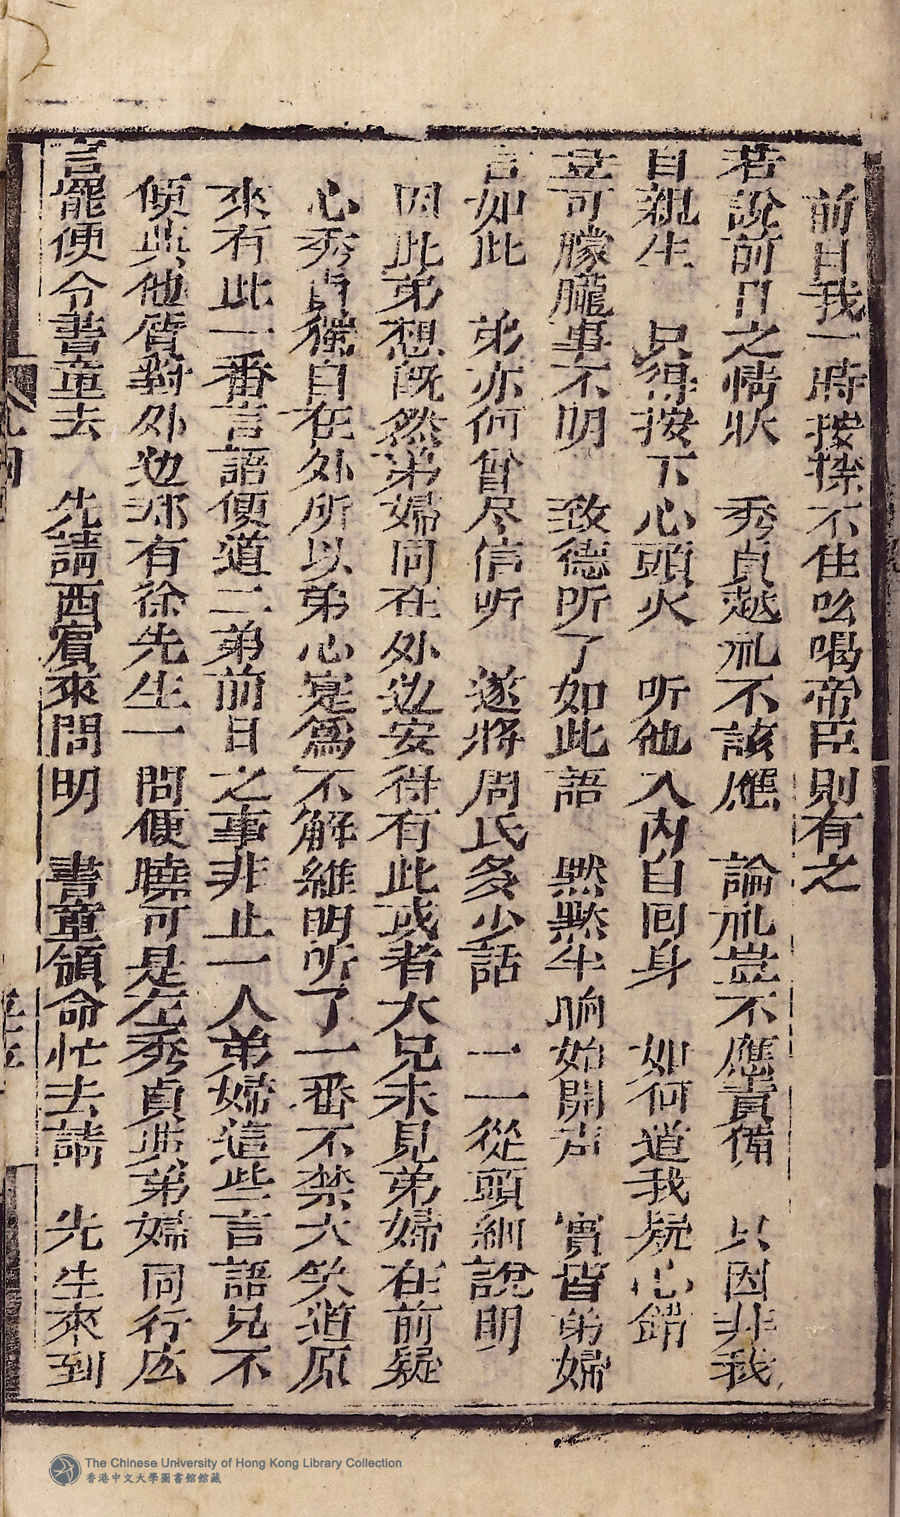 前日我一時按捺不住吆喝帝臣則有之
若說前日之情狀 秀貞越礼不該應 論礼豈不應責備 只因非我
自親生 只得按下心頭火 听他入內自回身 如何道我疑心錯
豈可朦朧事不明 致德听了如此語 黙黙半晌始開声 實皆弟婦
言如此 弟亦何曾尽信听 遂將周氏多少話 一一從頭細說明
因此弟想既然弟婦同在外边安得有此或者大兄未見弟婦在前疑
心秀貞獨自在外所以弟心寔爲不解維明听了一番不禁大笑道原
來有此一番言語便道二弟前日之事非止一人弟婦這些言語兄不
便與他質對外边那有徐先生一問便曉可是左秀貞與弟婦同行広
言罷便令書童去 先請西賓來問明 書童領命忙去請 先生來到
The Chinese University of Hong Kong Library Collection
香港中文大學圖書館館藏